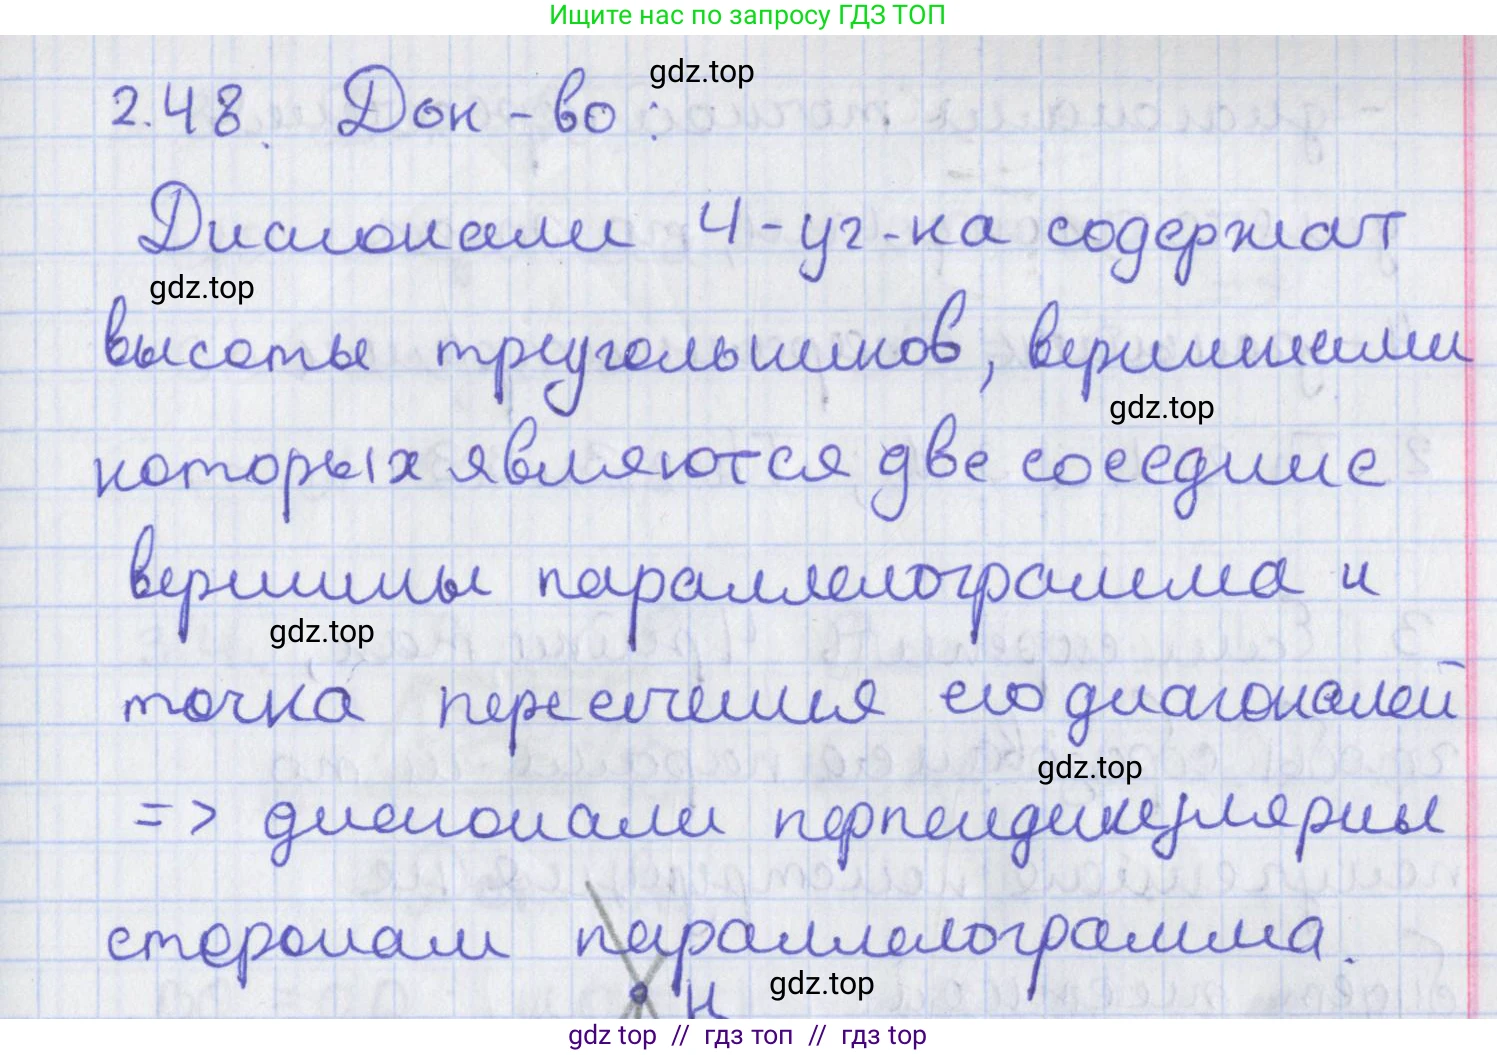 Ищите нас по запросу ГДЗ ТОП
gdz.top
2.48. Док-во:
Диагонали 4-уг-ка содержат
gdz.top
высоты треугольников, вершинами
gdz.top
которых являются две соседние
вершины параллелограмма и
gdz.top
точка пересечения его диагоналей
gdz.top
=> диагонали перпендикулярны
сторонам параллелограмма.
gdz.top
H
gdz top // гдз топ // гдз top